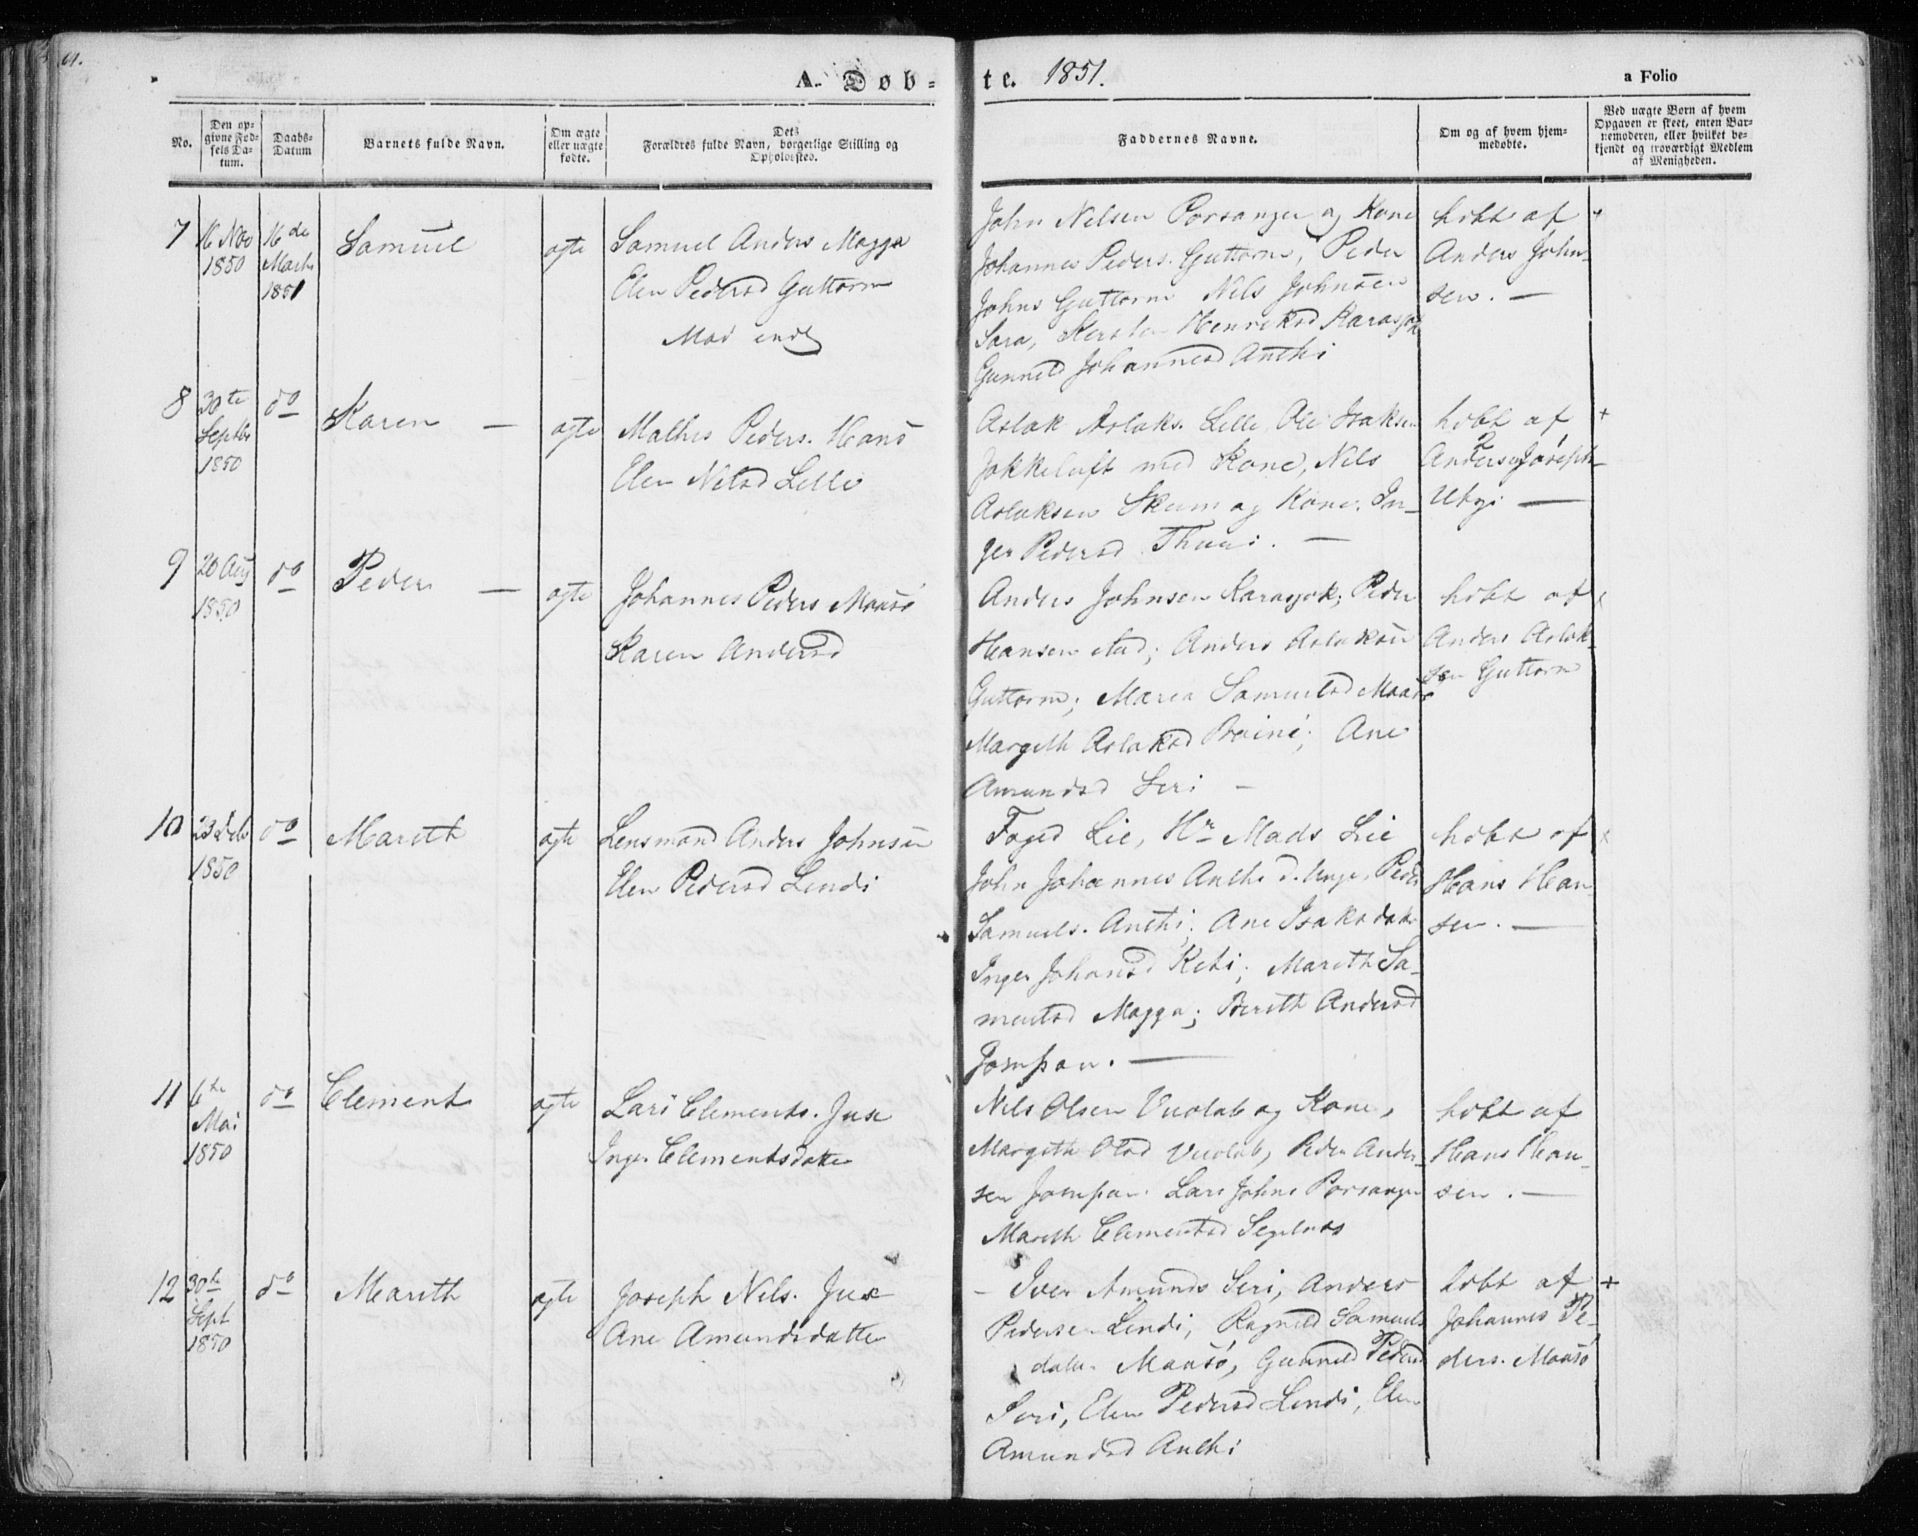 A. Døb-
te. 1851.
a Folio
No.
Den op-
givne Fød-
sels Da-
tum.
Daabs-
Datum
Barnets fulde Navn.
Om ægte
eller uægte
fødte.
Dets
Forældres fulde Navn, borgerlige Stilling og
Opholdssted.
Faddernes Navne.
Om og af hvem hjem-
medøbte.
Ved uægte Børn af hvem
Opgaven er skeet, enten Bar-
nemoderen, eller hvilket be-
kjendt og troværdigt Medlem
af Menigheden.
7
16 Nov
1850
16 de
Marts
1851
Samuel
ægte
Samuel Anders Magga
Elen Pedersd Guttorm
John Nelsen Porsanger og Kone
Johannes Peders. Guttorm, Peder
Johns Guttorm Nils Johnsen
Sara, Kersten Henriksd Karasjok
Gunneld Johannesd Anthi
hdbt af
Anders John-
sen. —
8
30te
Septbr
1850
do
Karen —
ægte
Mathis Peders. Hans
Elen Nilsd Lille
Aslak Aslaks. Lille, Ole Isaksen
Jokkeluft med Kone, Nils
Aslaksen Skum og Kone, In-
ger Pedersd Thuri. —
hdbt af
Anders Joseph
Utsi —
9
20 Aug
1850
do
Peder —
ægte
Johannes Peders Maasø
Karen Andersd
Anders Johnsen Karasjok; Peder
Hansen stad; Anders Aslaksen
Guttorm; Maren Samuelsd Maasø
Margith Aslaksd Baini; Ane
Amundsd Seri —
hdbt af
Anders Aslak-
sen Guttorm
10
1850
do
Mareth
ægte
Lensmand Anders Johnsen
Elen Pedersd Lendi
Foged Lie, Hr Mads Lie
John Johannes Anthi d. Unge, Peder
Samuels. Anthi; Ane Isaksdatr
Inger Johansd Keti; Mareth Sa-
muelsd Magga; Bereth Andersd
Jompan. —
hdbt af
Hans Han
sen. —
11
6te
Mai
1850
do
Clement
ægte
Lars Clements. Jux
Inger Clementsdatter
Nils Olsen Vuolab og Kone,
Margith Olsd Vuolab, Peder Ander-
sen Jompan. Lars Johns Porsanger
Mareth Clementsd Segelnæs
hdbt af
Hans Han-
sen. —
12
30te
Sept
1850
do
Mareth
ægte
Joseph Nils. Jux
Ane Amundsdatter
— Iver Amunds Seri, Anders
Pedersen Lendi, Ragnild Samuels
datter Maasø, Gunneld Pedersd
Seri, Elen Pedersd Lendi, Elen
Amundsd Anthi
hdbt af
Johannes Pe-
ders. Maasø